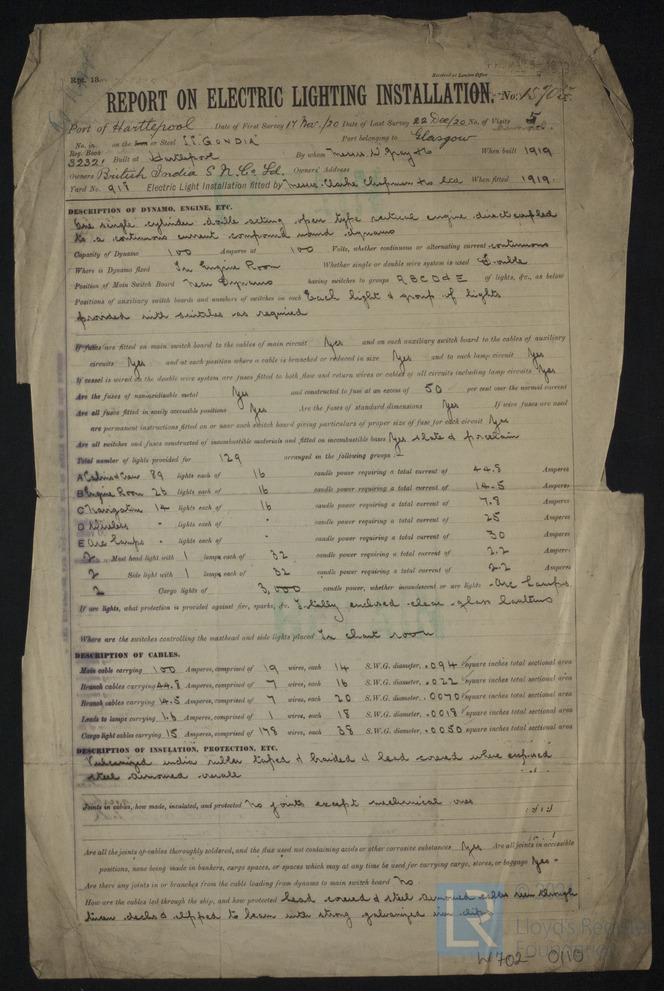 Rpt. 13.
Received at London Office
REPORT ON ELECTRIC LIGHTING INSTALLATION. No.
Port of Hartlepool Date of First Survey 17 Nov./20 Date of Last Survey 22 Dec/20 No. of Visits 5
No. in on the Iron or Steel S.S. "GONDIA" Port belonging to Glasgow
Reg. Book
3232 Built at Hartlepool By whom Messrs W Gray & Co When built 1919
Owners British India S N. Co Ld. Owners' Address
Yard No. 918 Electric Light Installation fitted by Messrs. Clarke Chapman & Co When fitted 1919.
DESCRIPTION OF DYNAMO, ENGINE, ETC.
One single cylinder double acting open type vertical engine direct coupled
to a continuous current compound wound dynamo
Capacity of Dynamo 100 Amperes at 100 Volts, whether continuous or alternating current continuous
Where is Dynamo fixed In Engine Room Whether single or double wire system is used Double
Position of Main Switch Board near Dynamo having switches to groups A B C D & E of lights, &c., as below
Positions of auxiliary switch boards and numbers of switches on each Each light & group of lights
provided with switches as required
If fuses are fitted on main switch board to the cables of main circuit Yes and on each auxiliary switch board to the cables of auxiliary
circuits Yes and at each position where a cable is branched or reduced in size Yes and to each lamp circuit Yes
If vessel is wired on the double wire system are fuses fitted to both flow and return wires or cables of all circuits including lamp circuits Yes
Are the fuses of non-oxidisable metal Yes and constructed to fuse at an excess of 50 per cent over the normal current
Are all fuses fitted in easily accessible positions Yes Are the fuses of standard dimensions Yes If wire fuses are used
are permanent instructions fitted on or near each switch board giving particulars of proper size of fuse for each circuit Yes
Are all switches and fuses constructed of incombustible materials and fitted on incombustible bases Yes slate & porcelain
Total number of lights provided for 129 arranged in the following groups :—
A Cabins & Crew 89 lights each of 16 candle power requiring a total current of 44.8 Amperes
B Engine Room 26 lights each of 16 candle power requiring a total current of 14.5 Amperes
C Navigation 14 lights each of 16 candle power requiring a total current of 7.8 Amperes
D Wireless - lights each of - candle power requiring a total current of 25 Amperes
E Arc Lamps - lights each of - candle power requiring a total current of 30 Amperes
2 Mast head light with 1 lamps each of 32 candle power requiring a total current of 2.2 Amperes
2 Side light with 1 lamps each of 32 candle power requiring a total current of 2.2 Amperes
2 Cargo lights of 3,000 candle power, whether incandescent or arc lights Arc Lamps
If arc lights, what protection is provided against fire, sparks, &c. Totally enclosed clear glass lanterns
Where are the switches controlling the masthead and side lights placed In chart room
DESCRIPTION OF CABLES.
Main cable carrying 100 Amperes, comprised of 19 wires, each 14 S.W.G. diameter, .094 square inches total sectional area
Branch cables carrying 44.8 Amperes, comprised of 7 wires, each 16 S.W.G. diameter, .022 square inches total sectional area
Branch cables carrying 14.5 Amperes, comprised of 7 wires, each 20 S.W.G. diameter, .0070 square inches total sectional area
Leads to lamps carrying 1.6 Amperes, comprised of 1 wires, each 18 S.W.G. diameter, .0018 square inches total sectional area
Cargo light cables carrying 15 Amperes, comprised of 178 wires, each 38 S.W.G. diameter, .0050 square inches total sectional area
DESCRIPTION OF INSULATION, PROTECTION, ETC.
Vulcanized india rubber taped & braided & lead covered where exposed
steel armoured
Joints in cables, how made, insulated, and protected No joints except mechanical ones
Are all the joints of cables thoroughly soldered, and the flux used not containing acids or other corrosive substances Yes Are all joints in accessible
positions, none being made in bunkers, cargo spaces, or spaces which may at any time be used for carrying cargo, stores, or baggage Yes
Are there any joints in or branches from the cable leading from dynamo to main switch board No
How are the cables led through the ship, and how protected Lead covered & steel armoured cables run through
decks & clipped to beams with strong galvanized iron clips
Lloyd's Register
Foundation
LR
W702-0110